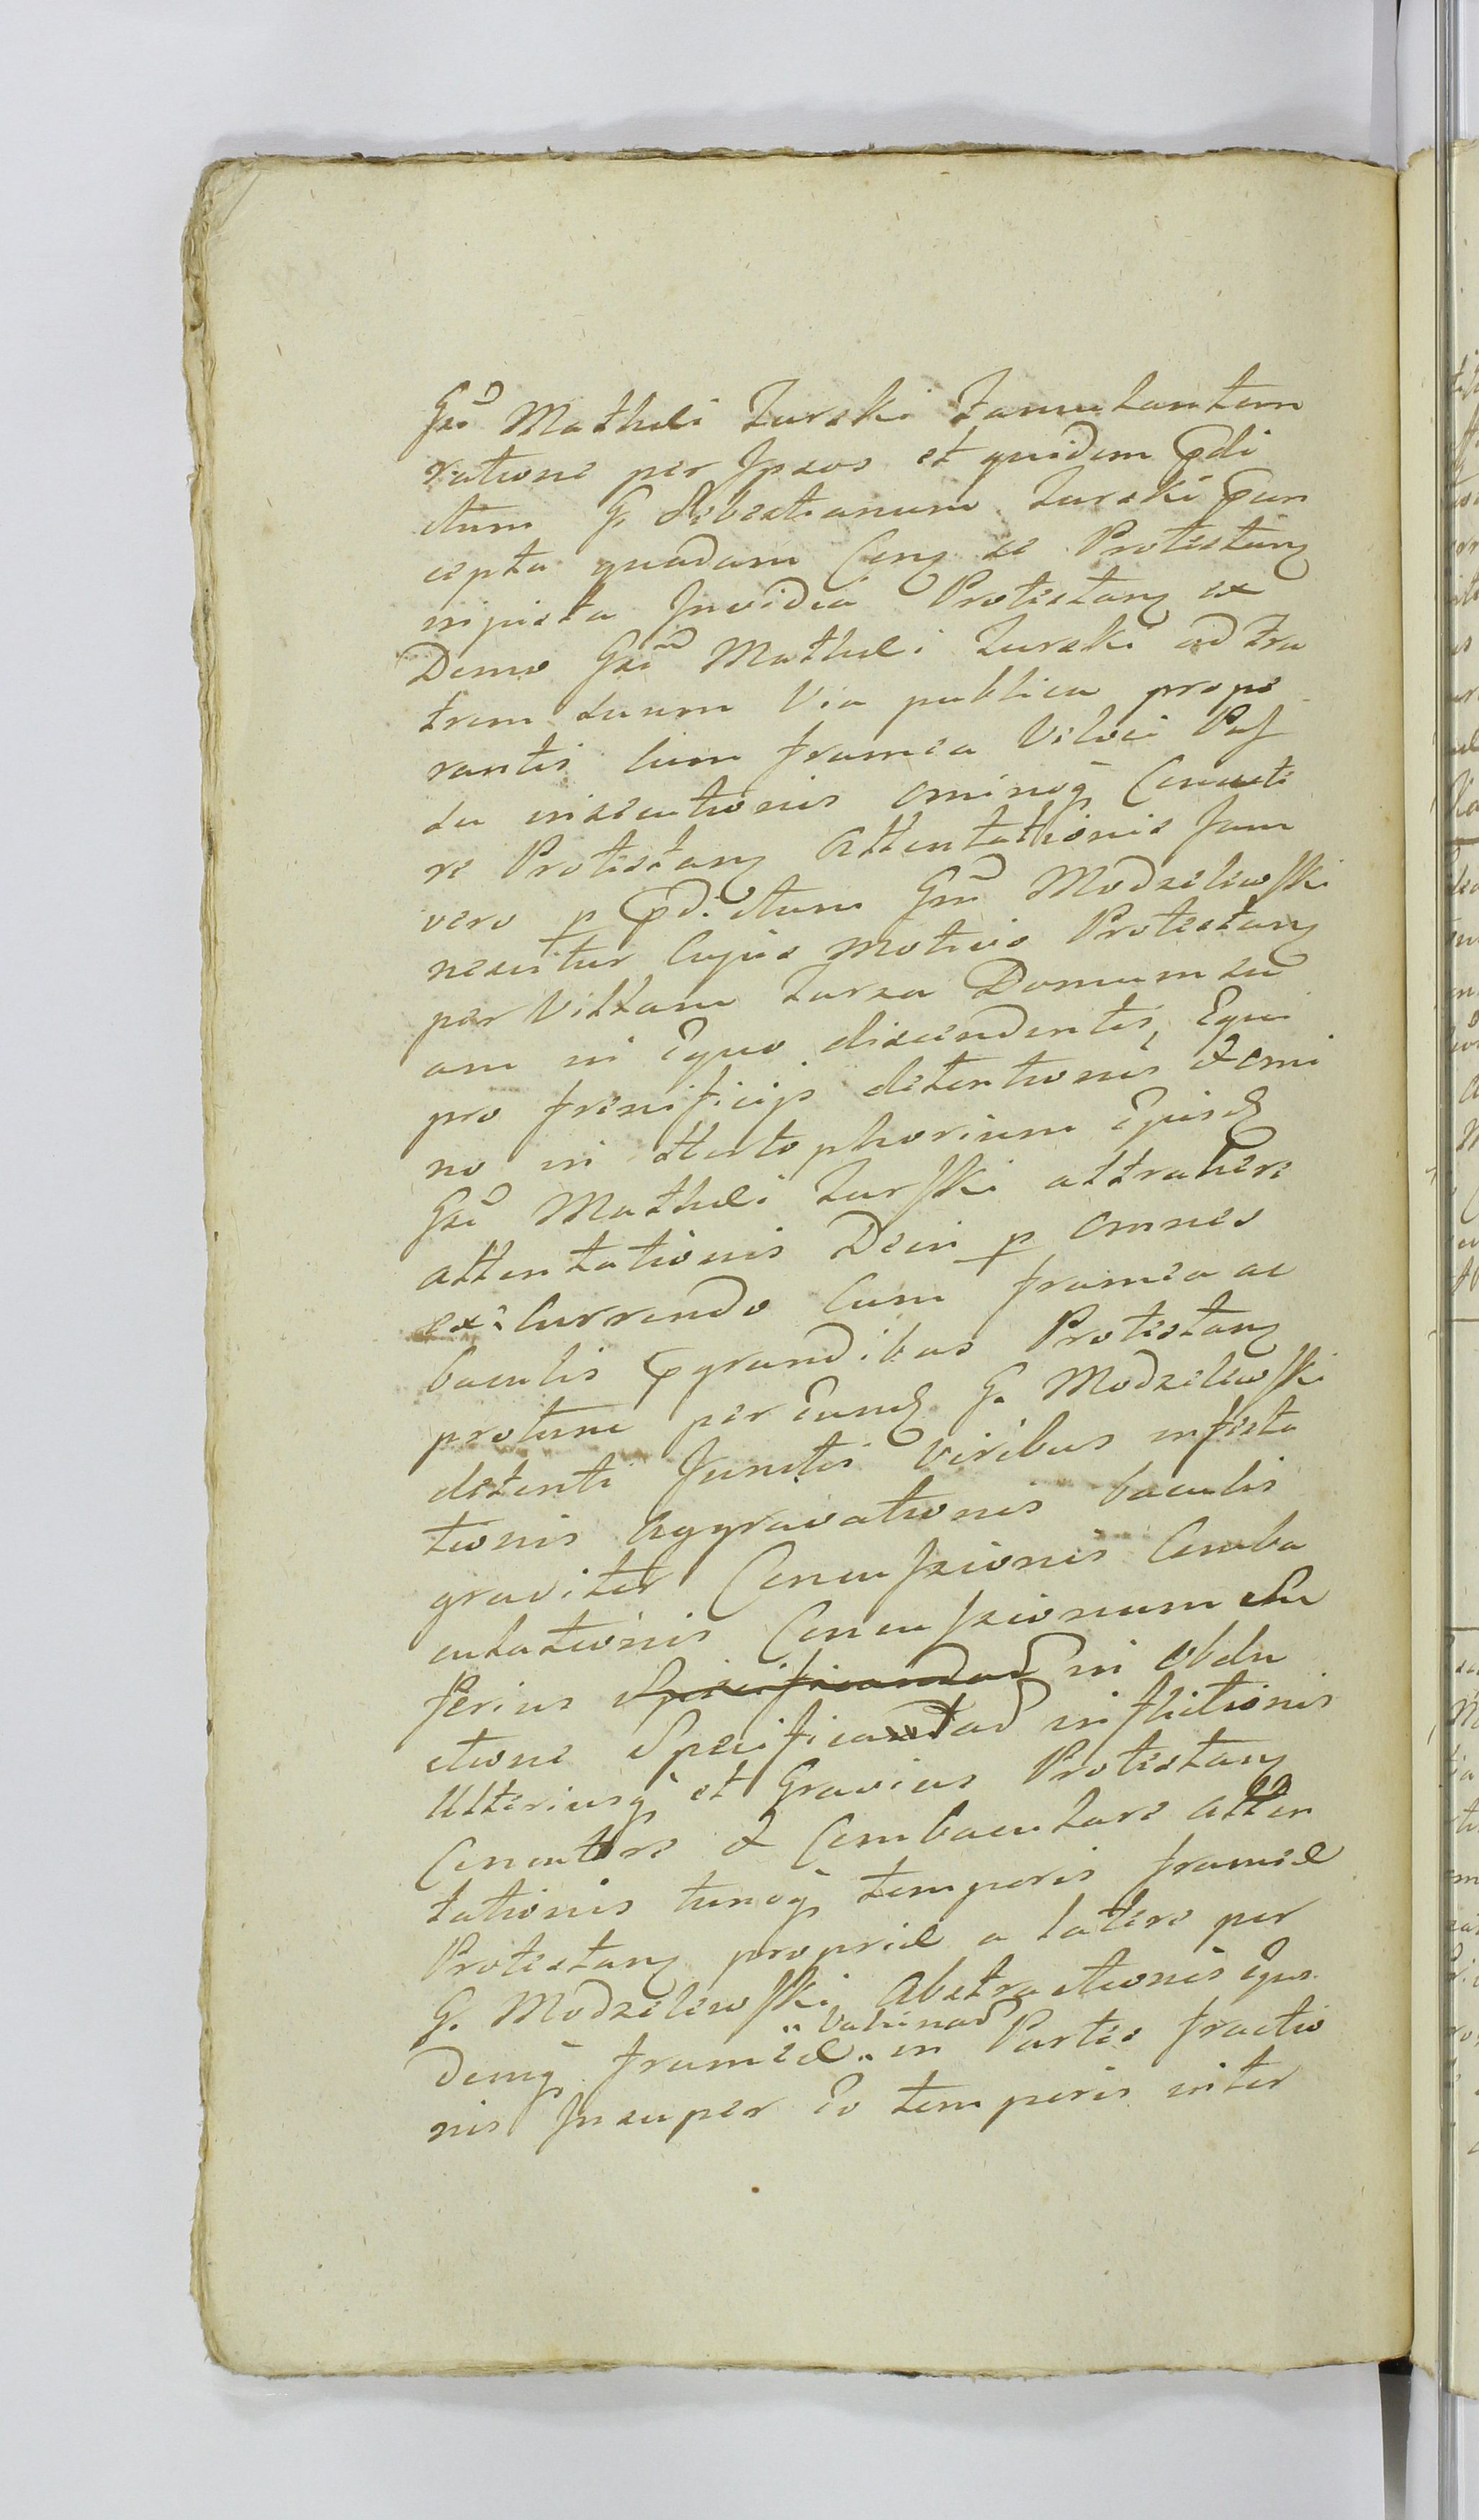 Gsi Mathei Zurski Famulantem
ratione per Ipsos et quidem pdi
ctum G. Sebestianum Zurski Con
cepta quadam Cong se Protestang
injusta Invidia Protestang ex
Domo Gsi Mathei Zurski ad Fra
trem suum Via publica prope
rantis Cum framea Veloci Paſ
su insecutionis ominoq Concute
re Protestang Attentationis Jam
vero p pdictum Gm Modzelewski
nescitur Cujus motivo Protestang
per Villam Zurza Domum su
am in Equo discendentis, Equi
pro frenificijs detentionis & omi
no in Hertophorium Ejusd
Gsi Mathei Zurski attrahere
attentationis Dein p omnes
ex=currendo Cum framea ac
baculis pgrandibus Protestang
protunc per Eund G. Modzelewski
detenti Junctis Viribus infesta
tionis Aggravationis baculis
graviter Concuſsionis Comba
culationis Concuſsionum
ferius Specificandad in Obdu
ctione Specificandad inflictionis
Ulteriusq et Gravius Protestang
Concutere & Combaculare atten
tationis tuncq temporis frameæ
Protestang propriæ a latere per
G. Modzelewski Abstractionis Ejus
demq frameæ " Valenad " in Partes fractio
nis Insuper Eo temporis inter